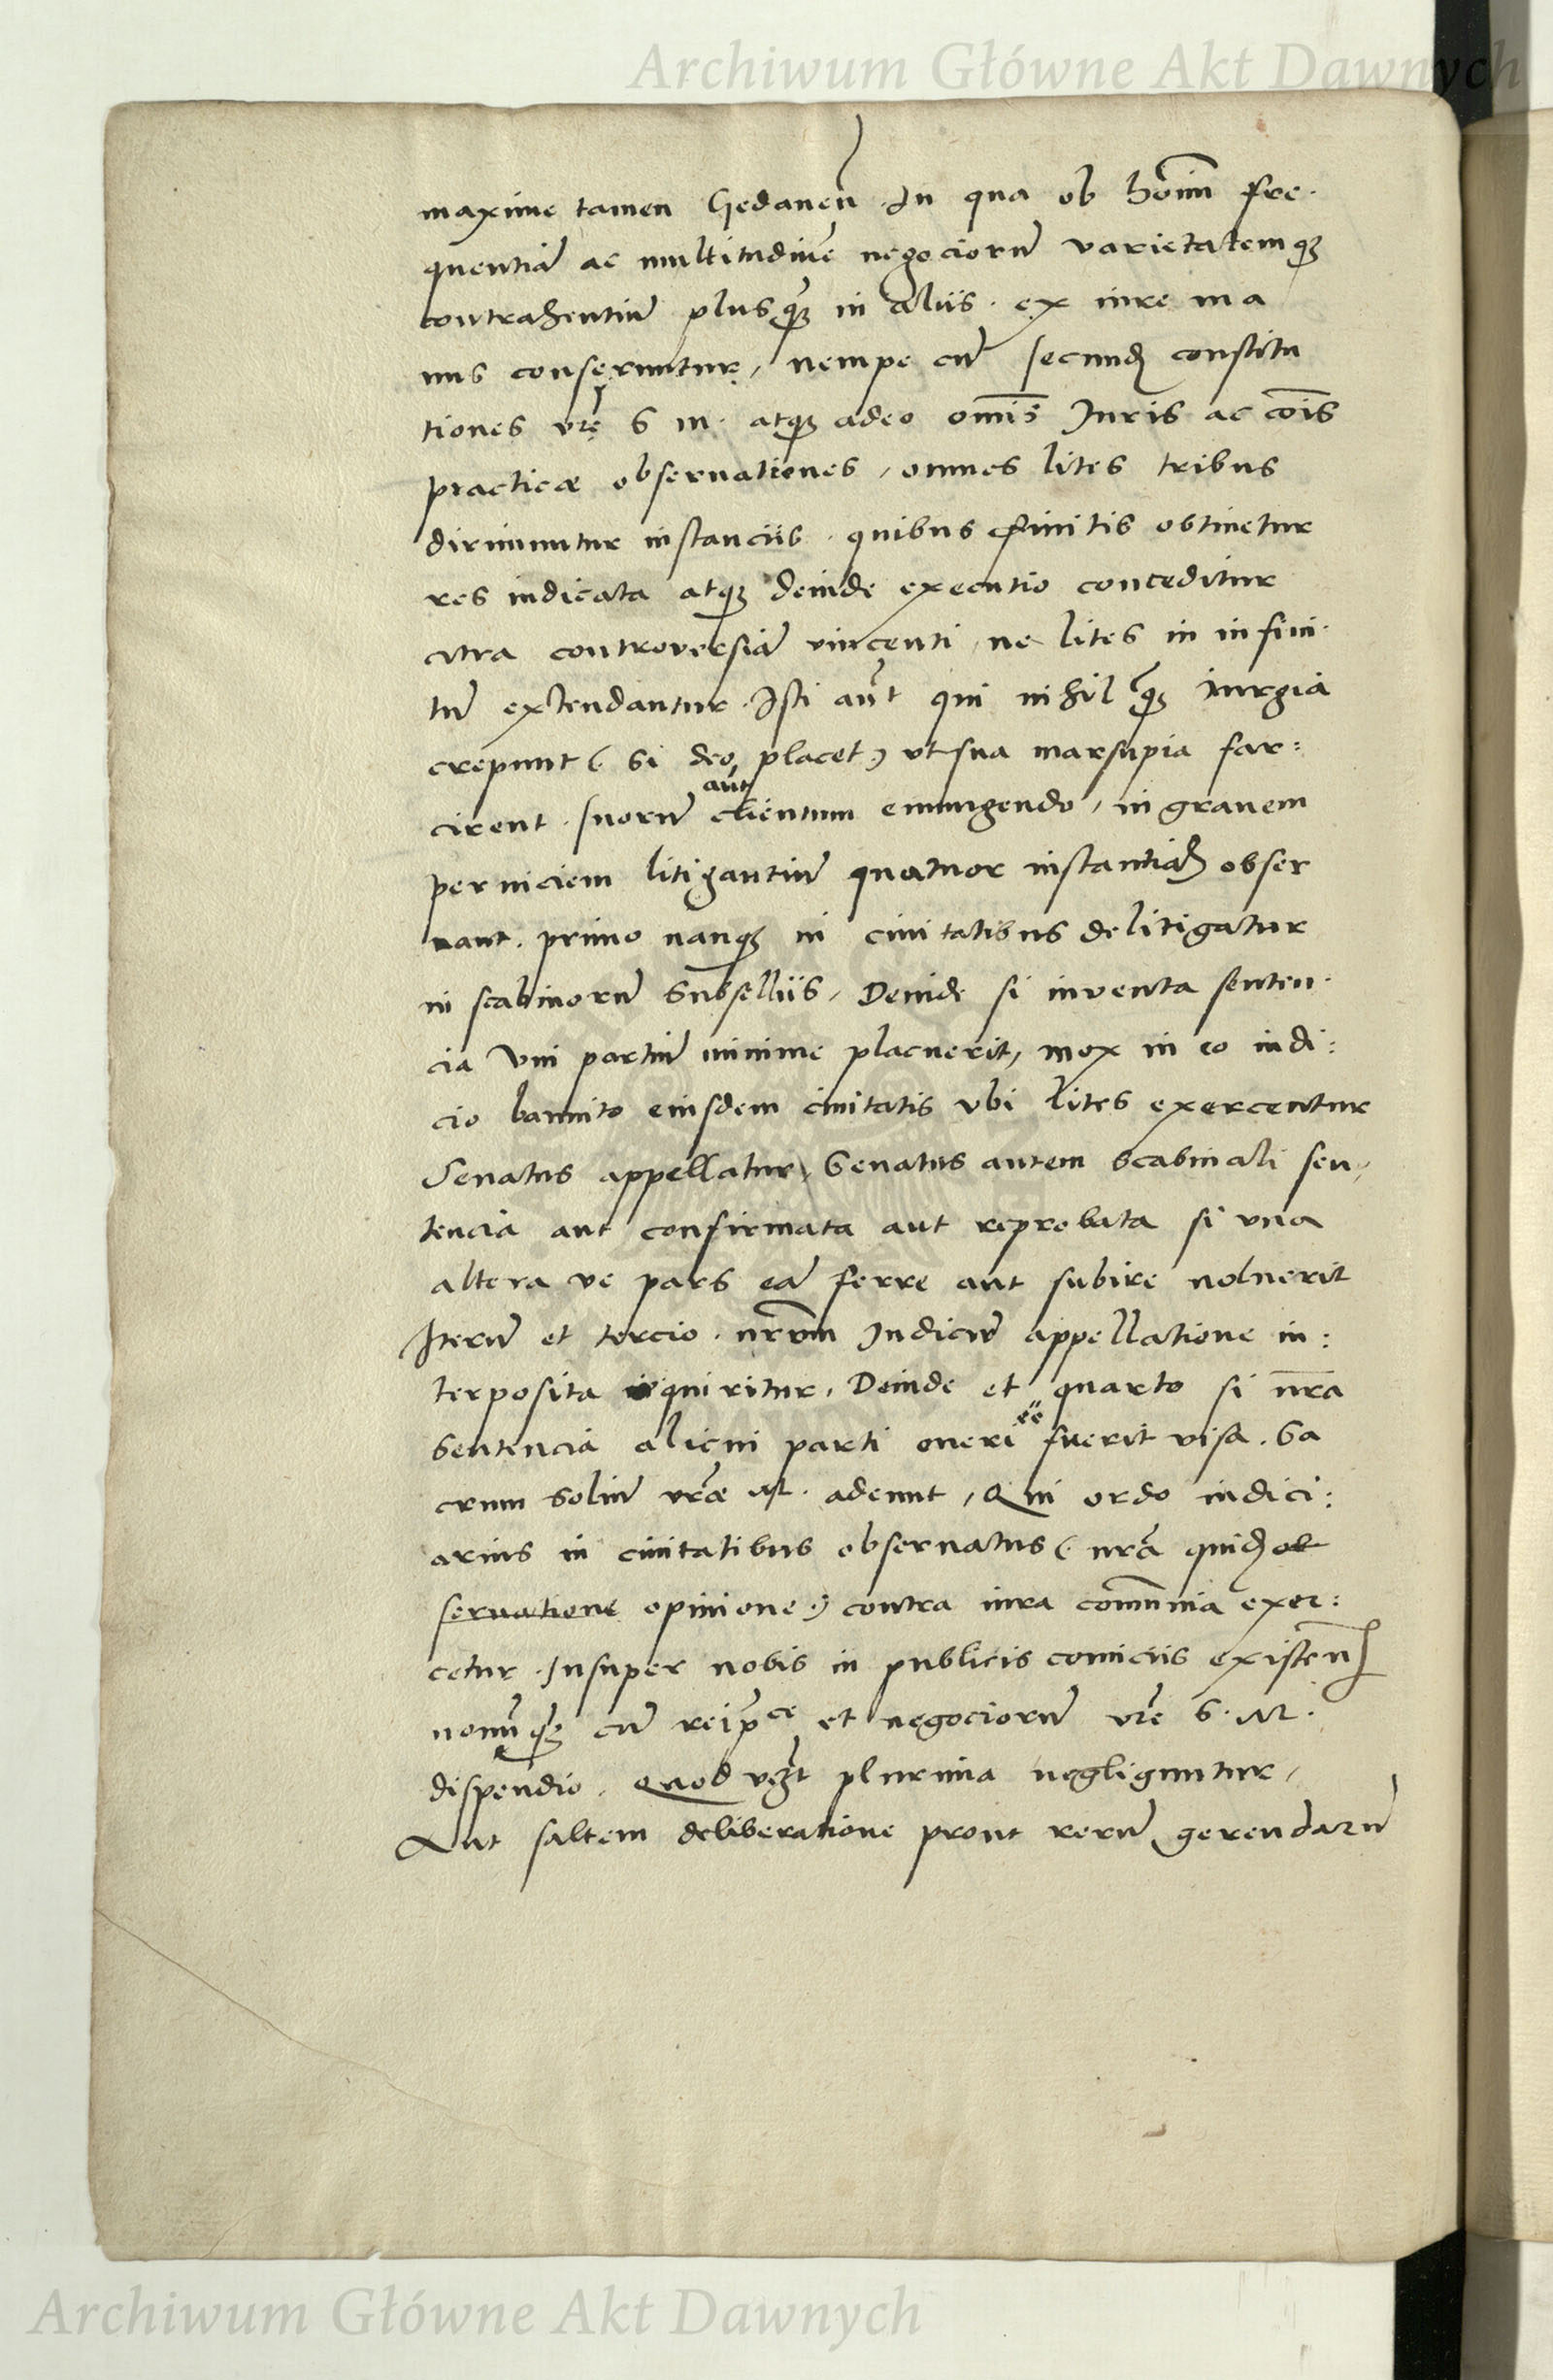 Archiwum Główne Akt Dawnych
maxime tamen Gedaneñ. In qua ob hoīm fre-
quentiā ac multitudinē negociorū varietatemqȝ
contrahentiū plusqȝ in aliis. ex iure ma
nus conseruntur, nempe cū secundȝ constitu
tiones vrę S M. atqȝ adeo omīs Iuris ac cōis
practicæ obseruationes, omnes lites tribus
dirimuntur instanciis. quibus finitis obtinetur
res iudicata atqȝ deinde executio conceditur
citra controversiā vincenti, ne lites in infini-
tū extendantur. Isti aūt qui nihil qȝ iurgia
crepunt (si deo placet) vt sua marsupia far:
cirent. suorū aūt clientum emungendo, in grauem
perniciem litigantiū quatuor instantias obser
uant. primo nanqȝ in ciuitatibus delitigatur
in scabinorū subselliis, Deinde si inventa senten-
cia vni partiū minime placuerit, mox in eo iudi:
cio bannito eiusdem ciuitatis vbi lites exercentur
Senatus appellatur, Senatus autem scabinali sen,
tencia aut confirmata aut reprobata si vna
altera ve pars eā ferre aut subire noluerit
Iterū et tercio. nrūm Iudiciū appellatione in:
terposita quiritur, Deinde et quarto si nrā
sentencia alicui parti oneri ēē fuerit visa. Sa
crum soliū vrǣ M. adeunt, Qui ordo iudici:
arius in ciuitatibus obseruatus (nrā quidȝ ob
seruatione opinione) contra iura com̄unia exer:
cetur. Insuper nobis in publicis comiciis existeñ
nonūqȝ cū reip̄ce et negociorū vrē S. M.
dispendio. Quod plurima negliguntur,
Aut saltem deliberatione prout rerū gerendarū
Archiwum Główne Akt Dawnych